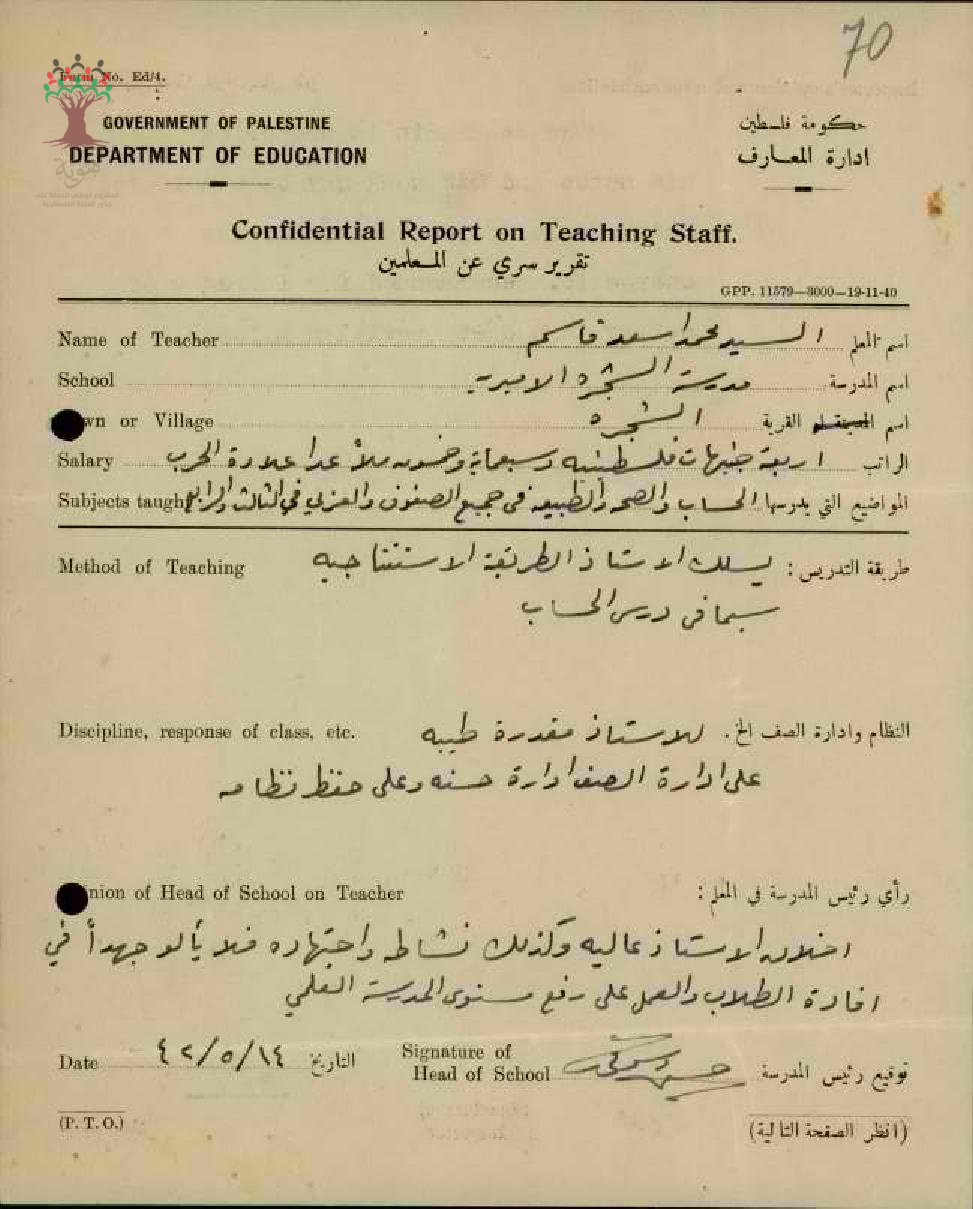 70
Form No. Ed/4.
GOVERNMENT OF PALESTINE
حكومة فلسطين
DEPARTMENT OF EDUCATION
ادارة المعارف
هوية
Confidential Report on Teaching Staff.
تقرير سري عن المعلمين
GPP. 11579—3000—19-11-40
Name of Teacher السيد محمد اسعد قاسم اسم المعلم
School مدرسة الشجره الاميرية اسم المدرسة
wn or Village الشجره اسم المدينة او القرية
Salary اربعة جنيهات فلسطينيه وسبعماية وخمسون ملاً عدا علاوة الحرب الراتب
Subjects taught الحساب والصحه والطبيعه في جميع الصفوف والعزلي في الثالث والرابع المواضيع التي يدرسها
Method of Teaching يسلك الاستاذ الطريقة الاستنتاجيه طريقة التدريس :
سيما في درس الحساب
Discipline, response of class, etc. للاستاذ مقدرة طيبه النظام وادارة الصف الخ.
على ادارة الصف ادارة حسنه وعلى حفظ نظامه
nion of Head of School on Teacher رأي رئيس المدرسة في المعلم :
اخلاق الاستاذ عاليه وكذلك نشاطه واجتهاده فلا يألو جهداً في
افادة الطلاب والعمل على رفع مستوى المدرسة العلمي
Date ٤٢/٥/١٤ التاريخ
Signature of
Head of School توقيع رئيس المدرسة
(P. T. O.)
(انظر الصفحة التالية)